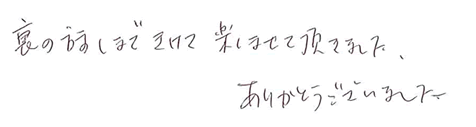 裏の話しまできけて 楽しませて頂きました、
ありがとうございました